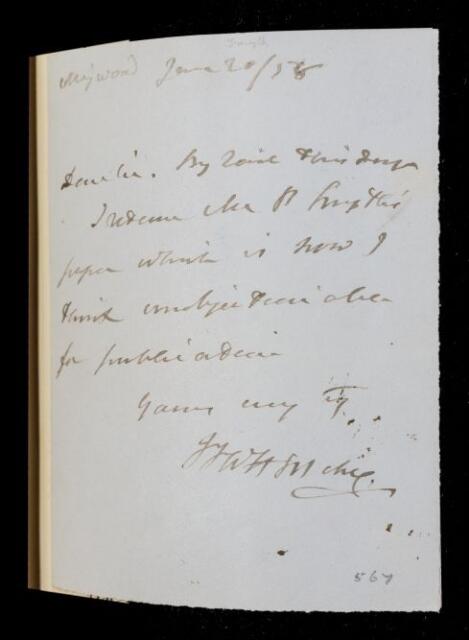 Smyth
June 20/58
Dear Sir. By Rail this day
I return Mr P Smyth's
paper which is now I
think unobjectionable
for publication
Yours very try
JFW Herschel
567